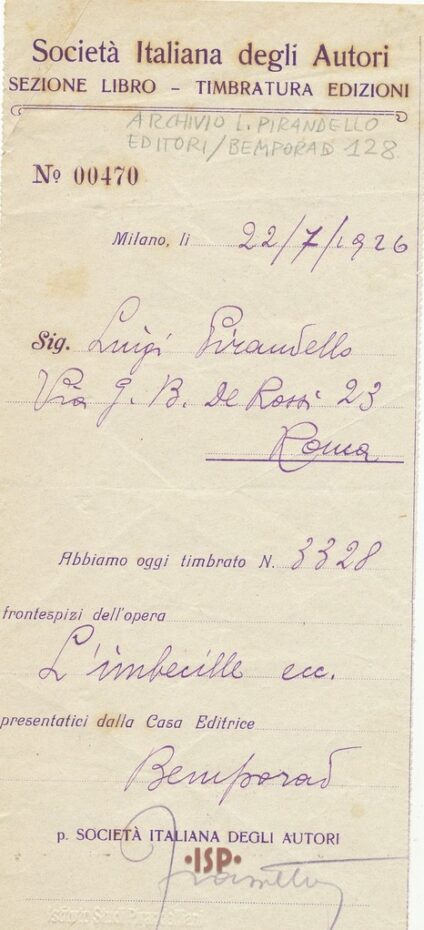 Società Italiana degli Autori
SEZIONE LIBRO - TIMBRATURA EDIZIONI
ARCHIVIO L. PIRANDELLO
EDITORI/BEMPORAD 128
Nº 00470
Milano, li 22/7/1926
Sig. Luigi Pirandello
Via G. B. De Rossi 23
Roma
Abbiamo oggi timbrato N. 3328
frontespizi dell'opera
L'imbecille ecc.
presentatici dalla Casa Editrice
Bemporad
p. SOCIETÀ ITALIANA DEGLI AUTORI
·ISP·